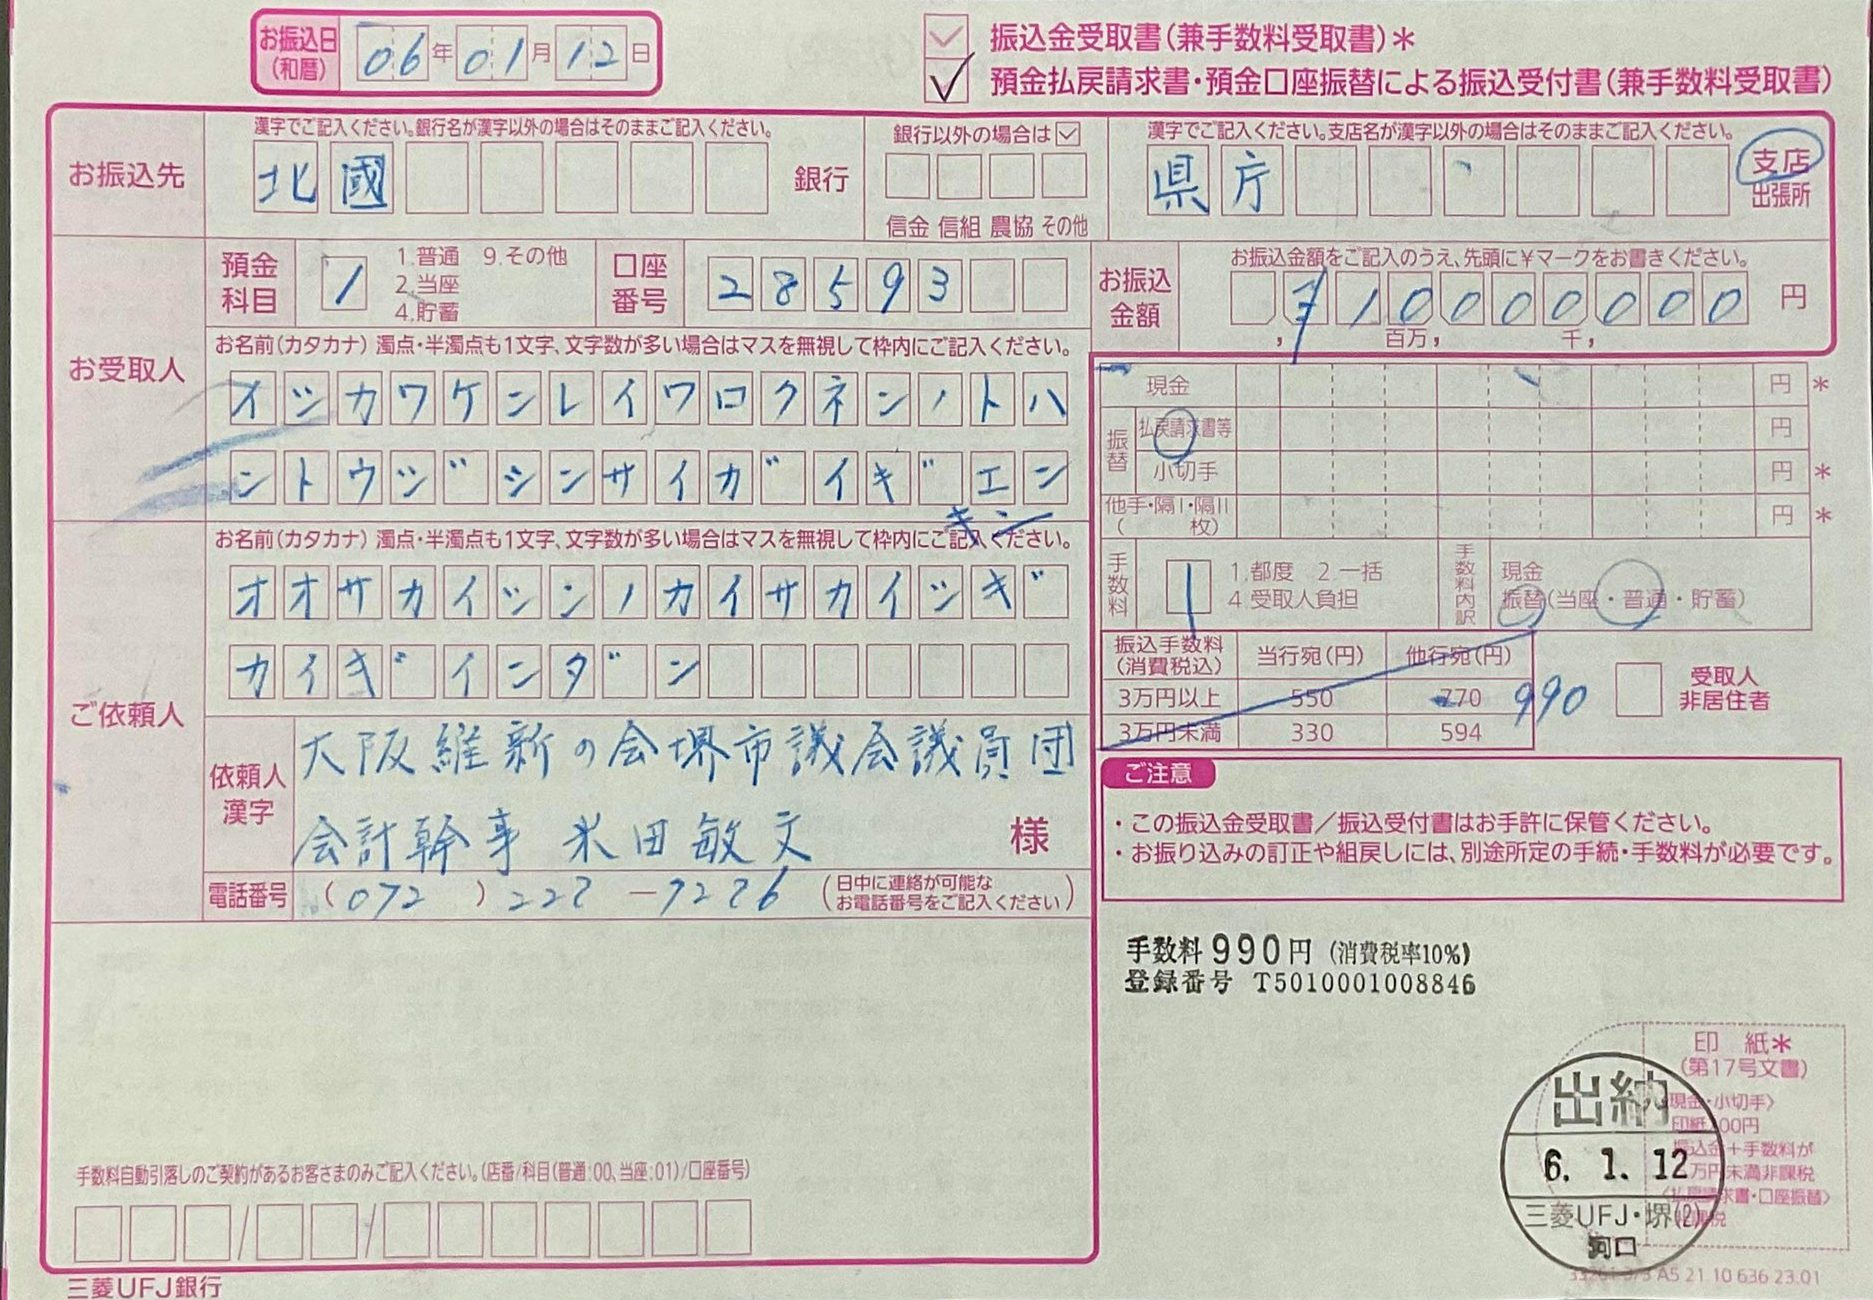 お振込日
(和暦)
06年01月12日
振込金受取書(兼手数料受取書)*
預金払戻請求書・預金口座振替による振込受付書(兼手数料受取書)
お振込先
漢字でご記入ください。銀行名が漢字以外の場合はそのままご記入ください。
北國 銀行
銀行以外の場合は
信金 信組 農協 その他
漢字でご記入ください。支店名が漢字以外の場合はそのままご記入ください。
県庁 支店
出張所
お受取人
預金科目
1
1.普通 9.その他
2.当座
4.貯蓄
口座番号
28593
お振込金額
お振込金額をご記入のうえ、先頭に¥マークをお書きください。
¥10000000 円
百万, 千,
お名前(カタカナ) 濁点・半濁点も1文字、文字数が多い場合はマスを無視して枠内にご記入ください。
イシカワケンレイワロクネンノトハ
ントウジシンサイガイギエン
キン
現金 円*
振替
払戻請求書等 円
小切手 円*
他手・隔I・隔II
( 枚) 円*
ご依頼人
お名前(カタカナ) 濁点・半濁点も1文字、文字数が多い場合はマスを無視して枠内にご記入ください。
オオサカイシンノカイサカイシギ
カイギインダン
手数料
1
1.都度 2.一括
4.受取人負担
手数料内訳
現金
振替(当座・普通・貯蓄)
振込手数料
(消費税込) 当行宛(円) 他行宛(円)
3万円以上 550 770 990
3万円未満 330 594
受取人
非居住者
依頼人
漢字
大阪維新の会堺市議会議員団
会計幹事 米田敏文 様
電話番号
(日中に連絡が可能な
お電話番号をご記入ください)
ご注意
・この振込金受取書/振込受付書はお手許に保管ください。
・お振り込みの訂正や組戻しには、別途所定の手続・手数料が必要です。
手数料 990円 (消費税率10%)
登録番号 T5010001008846
印 紙*
(第17号文書)
出納
6. 1. 12
三菱UFJ・堺(2)
手数料自動引落しのご契約があるお客さまのみご記入ください。(店番/科目(普通:00、当座:01)/口座番号)
三菱UFJ銀行
A5 21.10 636 23.01